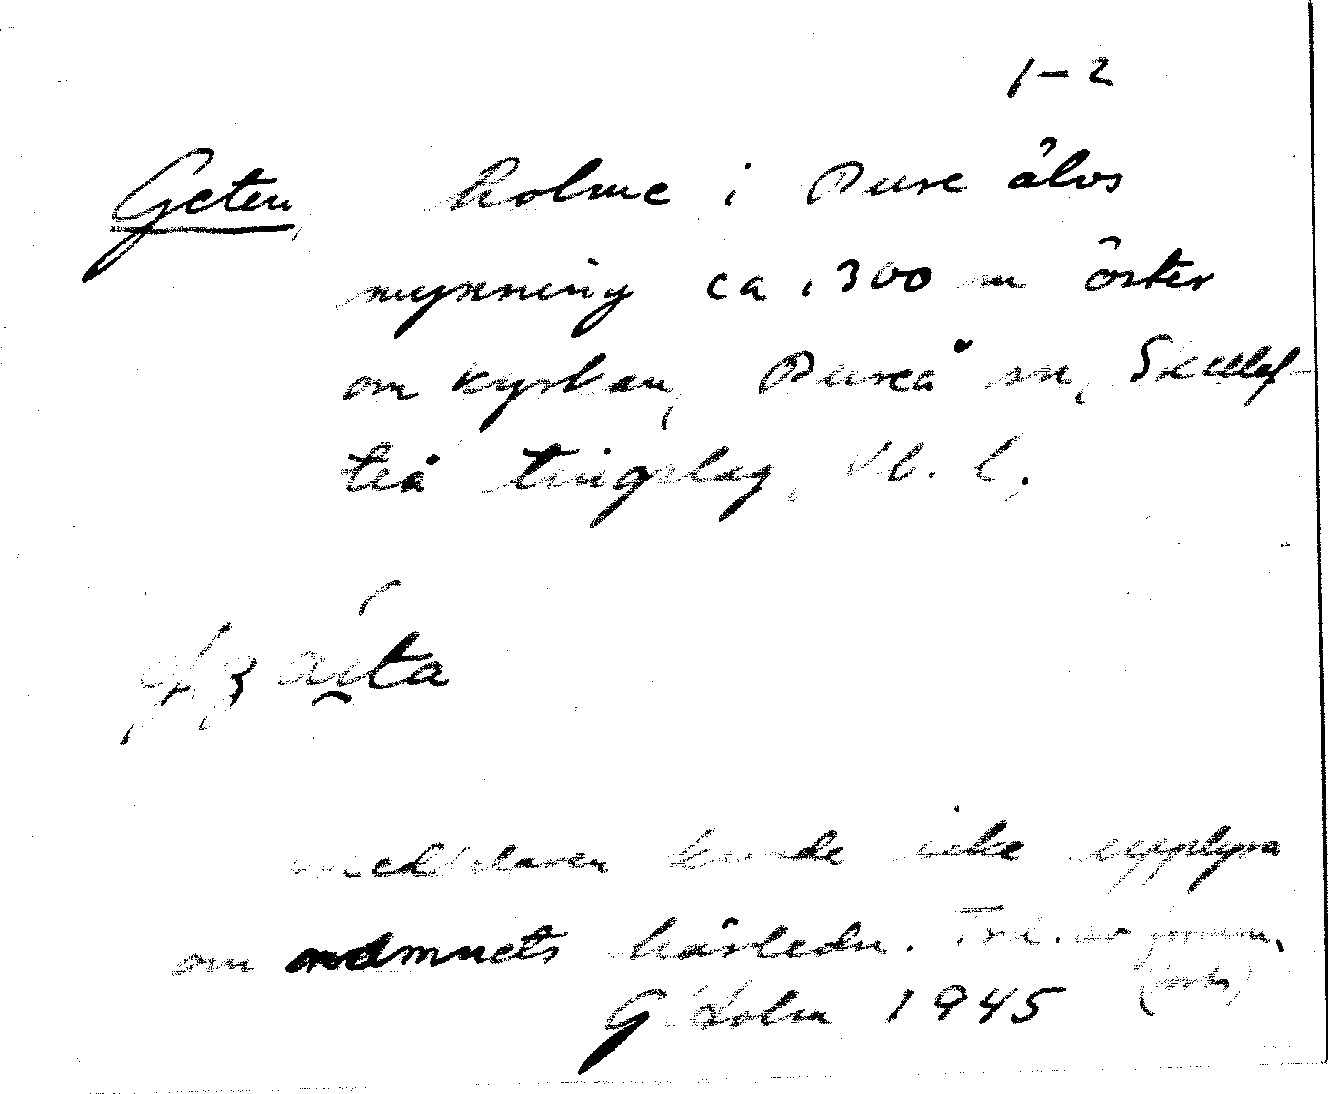 1-2
Geten, holme i Bure älvs
mynning ca. 300 m öster
om kyrkan, Bureå sn, Skellef-
teå tingslag, Vb. l.
meddelaren kunde icke upplysa
om namnets härledn.
G Holm 1945